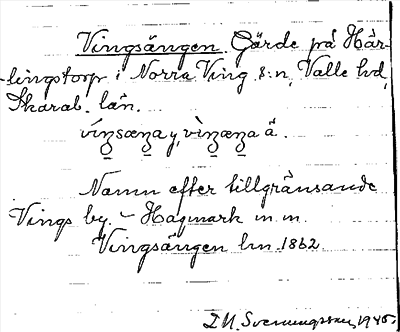 Vingsängen. Gärde på Här-
lingstorp i Norra Ving s:n, Valle hd,
Skarab. län.
víŋsæŋa y, vìŋæŋa ä.
Namn efter tillgränsande
Vings by. - Hagmark m m.
Vingsängen hm 1862
Svenungsson, 1945.